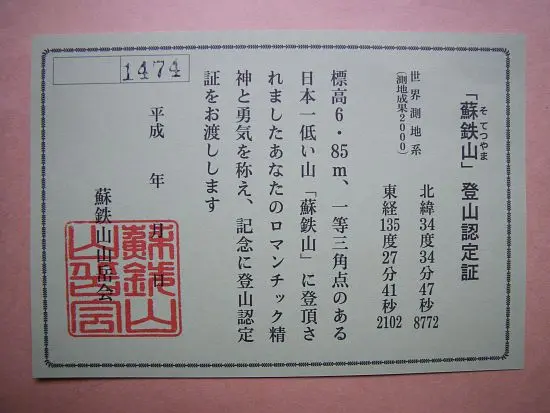 「蘇鉄山」登山認定証
そてつやま
世界測地系
(測地成果2000)
北緯34度34分47秒8772
東経135度27分41秒2102
標高6・85m、一等三角点のある
日本一低い山「蘇鉄山」に登頂さ
れましたあなたのロマンチック精
神と勇気を称え、記念に登山認定
証をお渡しします
平成 年 月 日
蘇鉄山山岳会
蘇鉄山
山岳会
1474